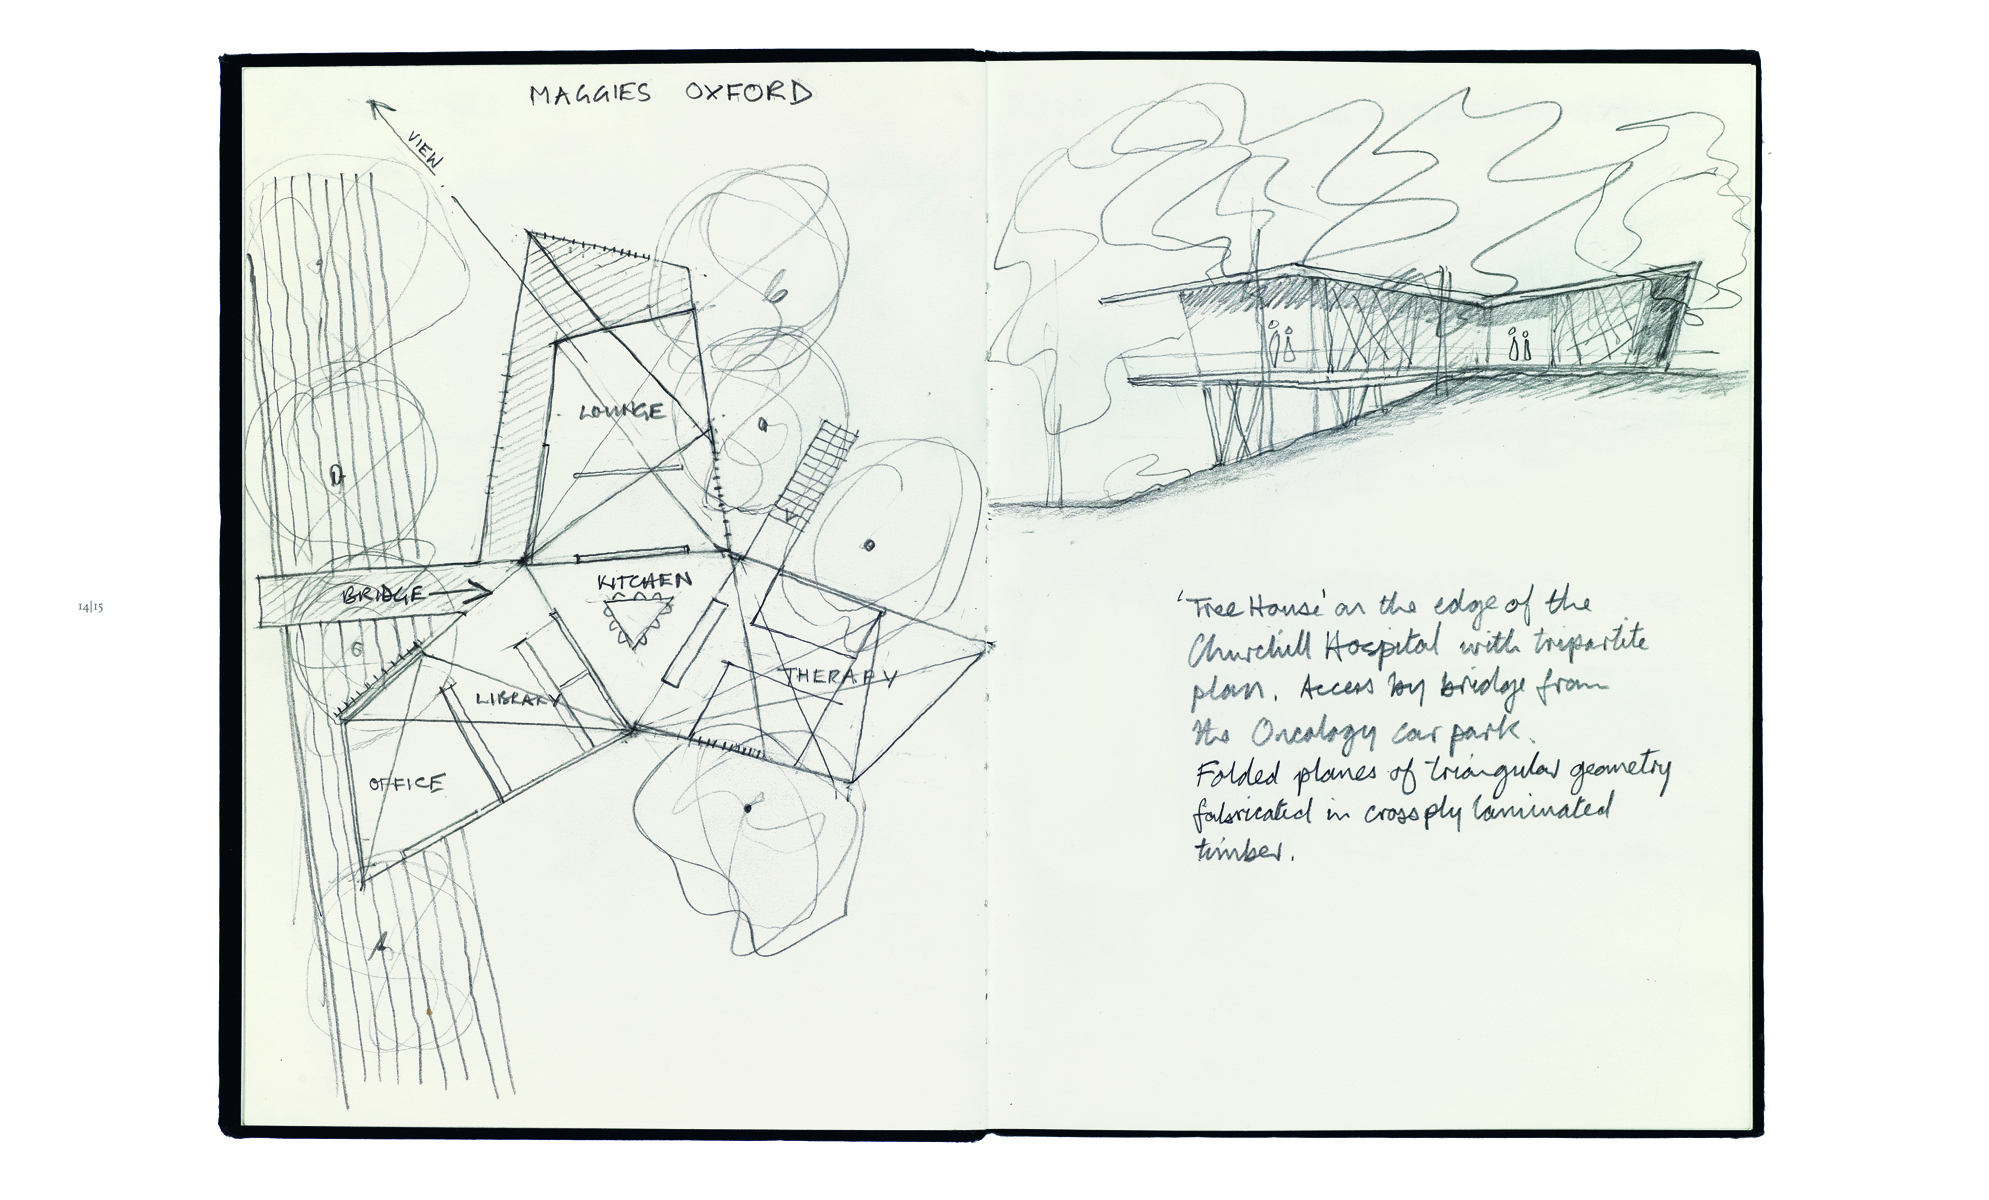 MAGGIES OXFORD
VIEW
LOUNGE
KITCHEN
BRIDGE
THERAPY
LIBRARY
OFFICE
14|15
'Tree House' on the edge of the
Churchill Hospital with tripartite
plan. Access by bridge from
the Oncology car park.
Folded planes of triangular geometry
fabricated in crossply laminated
timber.